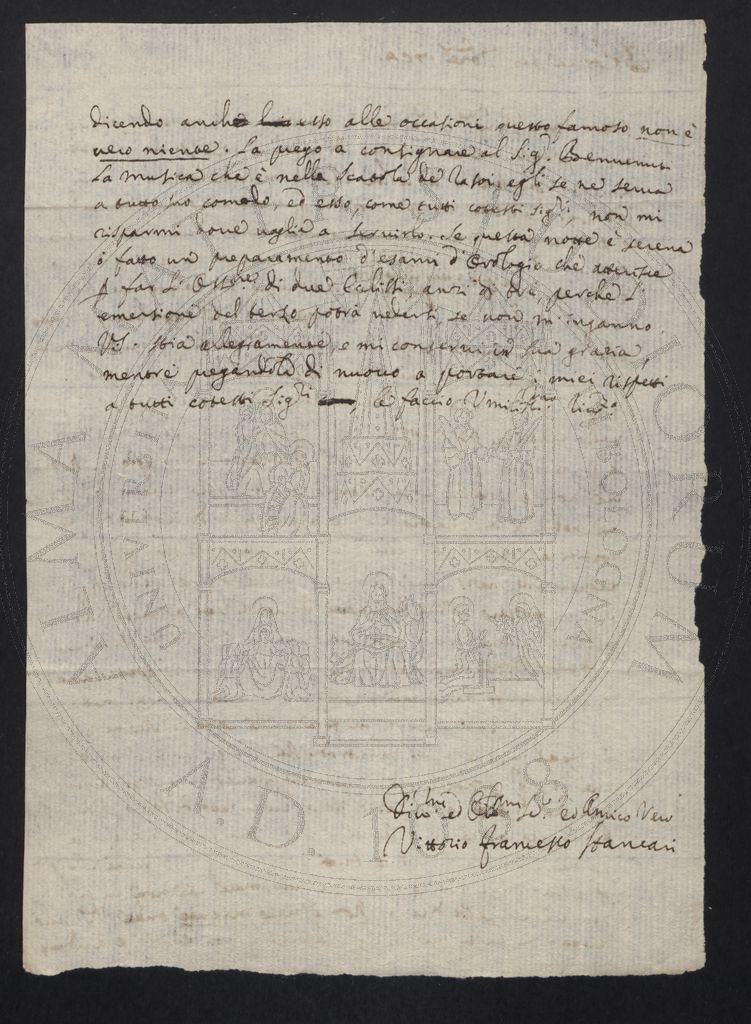 dicendo anche esso alle occasioni questo famoso non è
vero niente. La prego a consignare al Sig.r Benvenuti
la musica che è nella Scattola de rasoi, egli se ne serva
a tutto suo comodo, ed esso, come tutti cotesti Sig.ri, non mi
risparmi dove vaglia a servirlo. Se questa notte è serena
ò fatto un preparamento d'esami d'Orologio che atterisce
p far l'Osser.ne di due Eclissi, anzi di tre, perché l'
emersione del terzo potrà vedersi, se non m'inganno.
V.S. stia allegramente, e mi conservi in sua grazia,
mentre pregandola di nuovo a portare i miei rispetti
a tutti cotesti Sig.ri, le faccio Umiliss.ma River.za
Div.mo ed Obl.mo S.re ed Amico Vero
Vittorio Francesco Stancari
ALMA MATER STUDIORUM
UNIVERSITÀ DI BOLOGNA
A.D. 1088